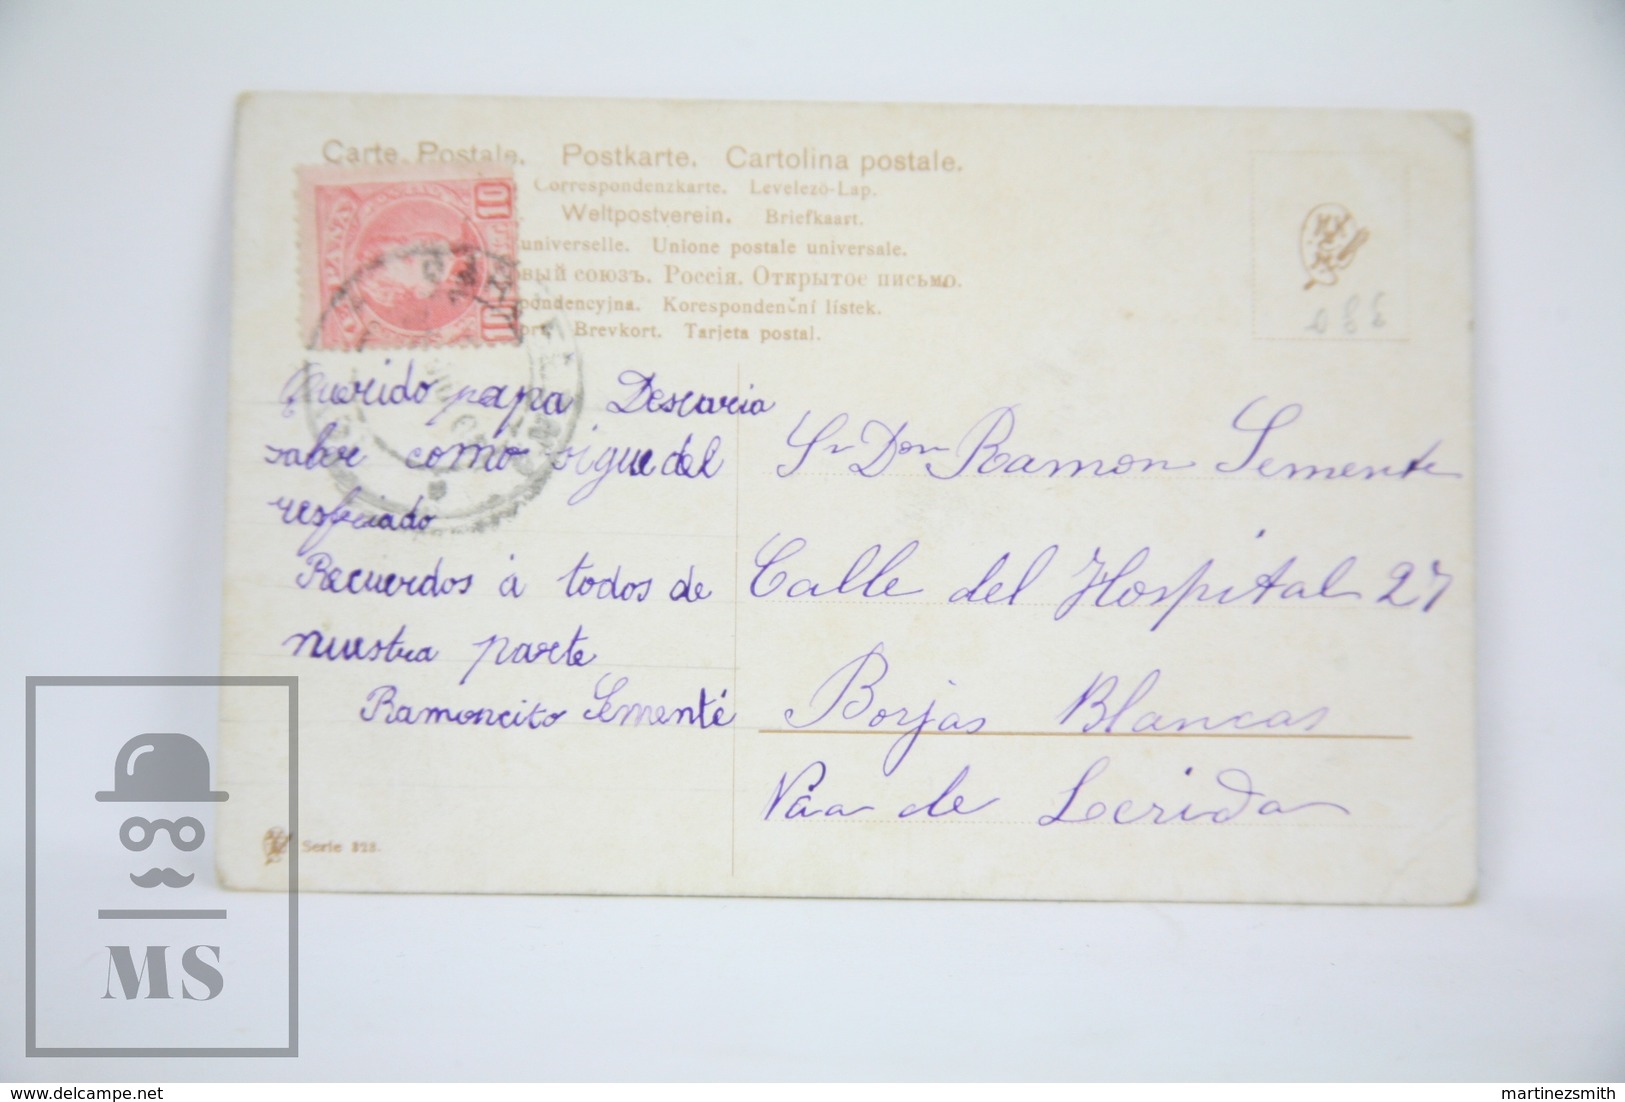 Carte Postale. Postkarte. Cartolina postale.
Correspondenzkarte. Levelező-Lap.
Weltpostverein. Briefkaart.
universelle. Unione postale universale.
вый союзъ. Россія. Открытое письмо.
pondencyjna. Korespondenční lístek.
Brevkort. Tarjeta postal.
ESPAÑA
10
10
Querido papa Descaria
saber como sigue del
resfriado
Recuerdos á todos de
nuestra parte
Ramoncito Sementé
Sr Don Ramon Sementé
Calle del Hospital 27
Borjas Blancas
de Lerida
Serie
MS
delcampe.net
martinezsmith